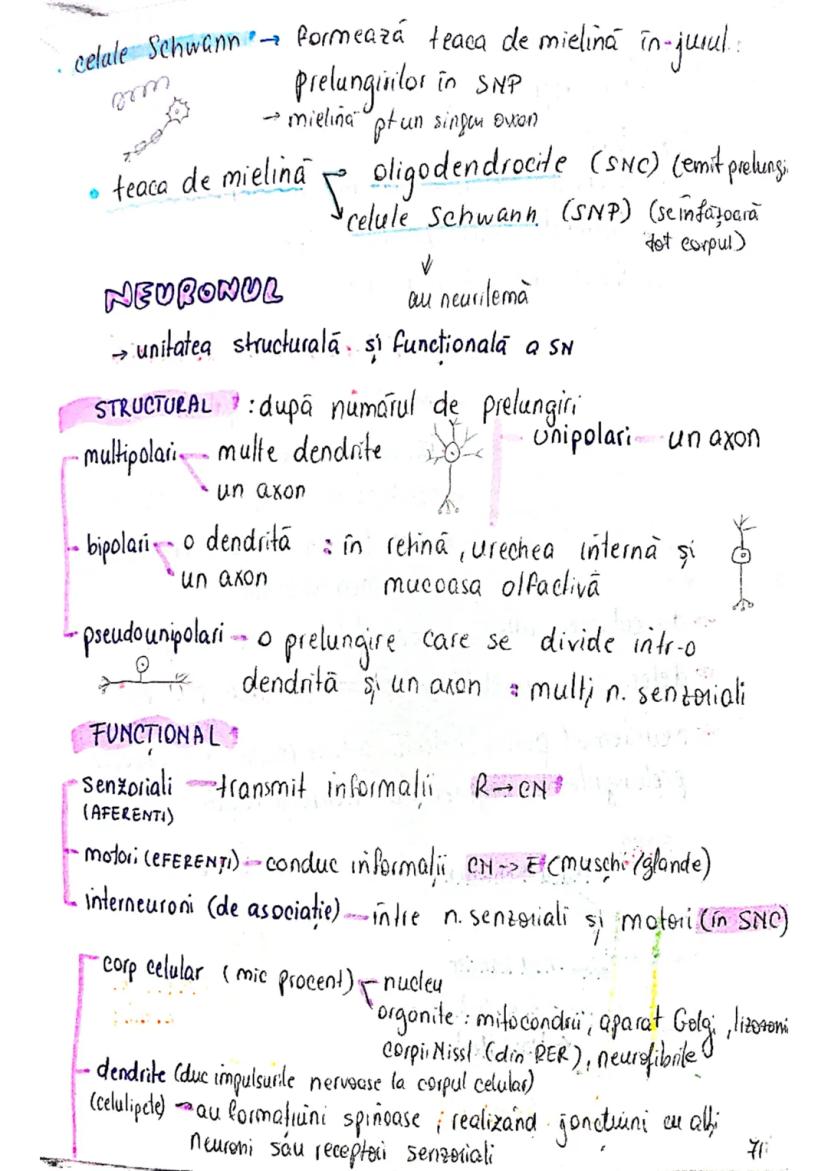 • celule Schwann → formează teaca de mielină în-jurul
prelungirilor în SNP
→ mielină pt un singur axon
• teaca de mielină → oligodendrocite (SNC) (emit prelungi
celule Schwann (SNP) (se înfășoară
tot corpul)
↓
au neurilemă
NEURONUL
→ unitatea structurală și funcțională a SN
STRUCTURAL : după numărul de prelungiri
multipolari - multe dendrite
un axon
unipolari - un axon
bipolari - o dendrită : în retină, urechea internă și
un axon mucoasa olfactivă
pseudounipolari - o prelungire care se divide într-o
dendrită și un axon : mulți n. senzoriali
FUNCȚIONAL
senzoriali - transmit informații R→CN
(AFERENȚI)
motori (EFERENȚI) - conduc informații CN→E (mușchi/glande)
interneuroni (de asociație) - între n. senzoriali și motori (în SNC)
corp celular (mic procent) - nucleu
organite : mitocondrii, aparat Golgi, lizozomi
corpii Nissl (din RER), neurofibrile
dendrite (duc impulsurile nervoase la corpul celular)
(celulipete) → au formațiuni spinoase ; realizând joncțiuni cu alți
neuroni sau receptori senzoriali
71